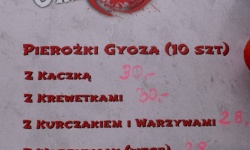 Pierożki Gyoza (10 szt)
z Kaczką 30,-
z Krewetkami 30,-
z Kurczakiem i Warzywami 28,